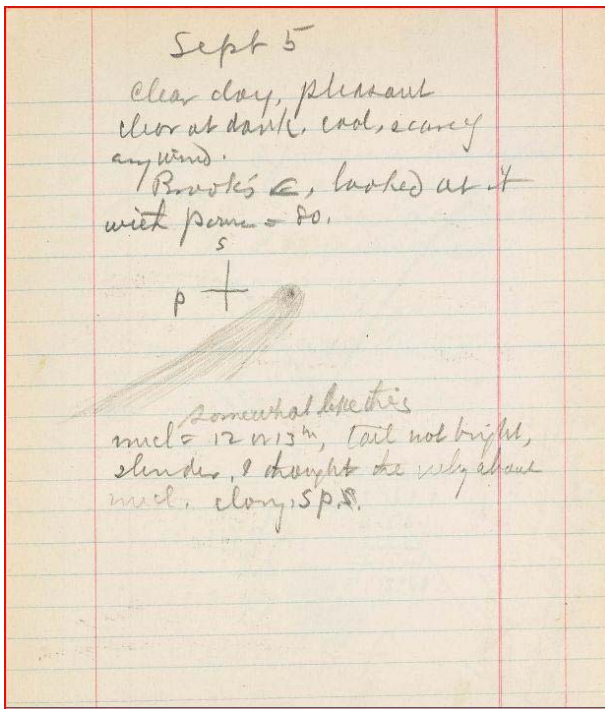 Sept 5
clear day, pleasant
clear at dark, cool, scarcy
any wind.
Brooks' C, looked at it
with power = 80.
S
P
somewhat like this
nucl = 12 or 13m, tail not bright,
slender, I thought the neby about
nucl. elong. S P.